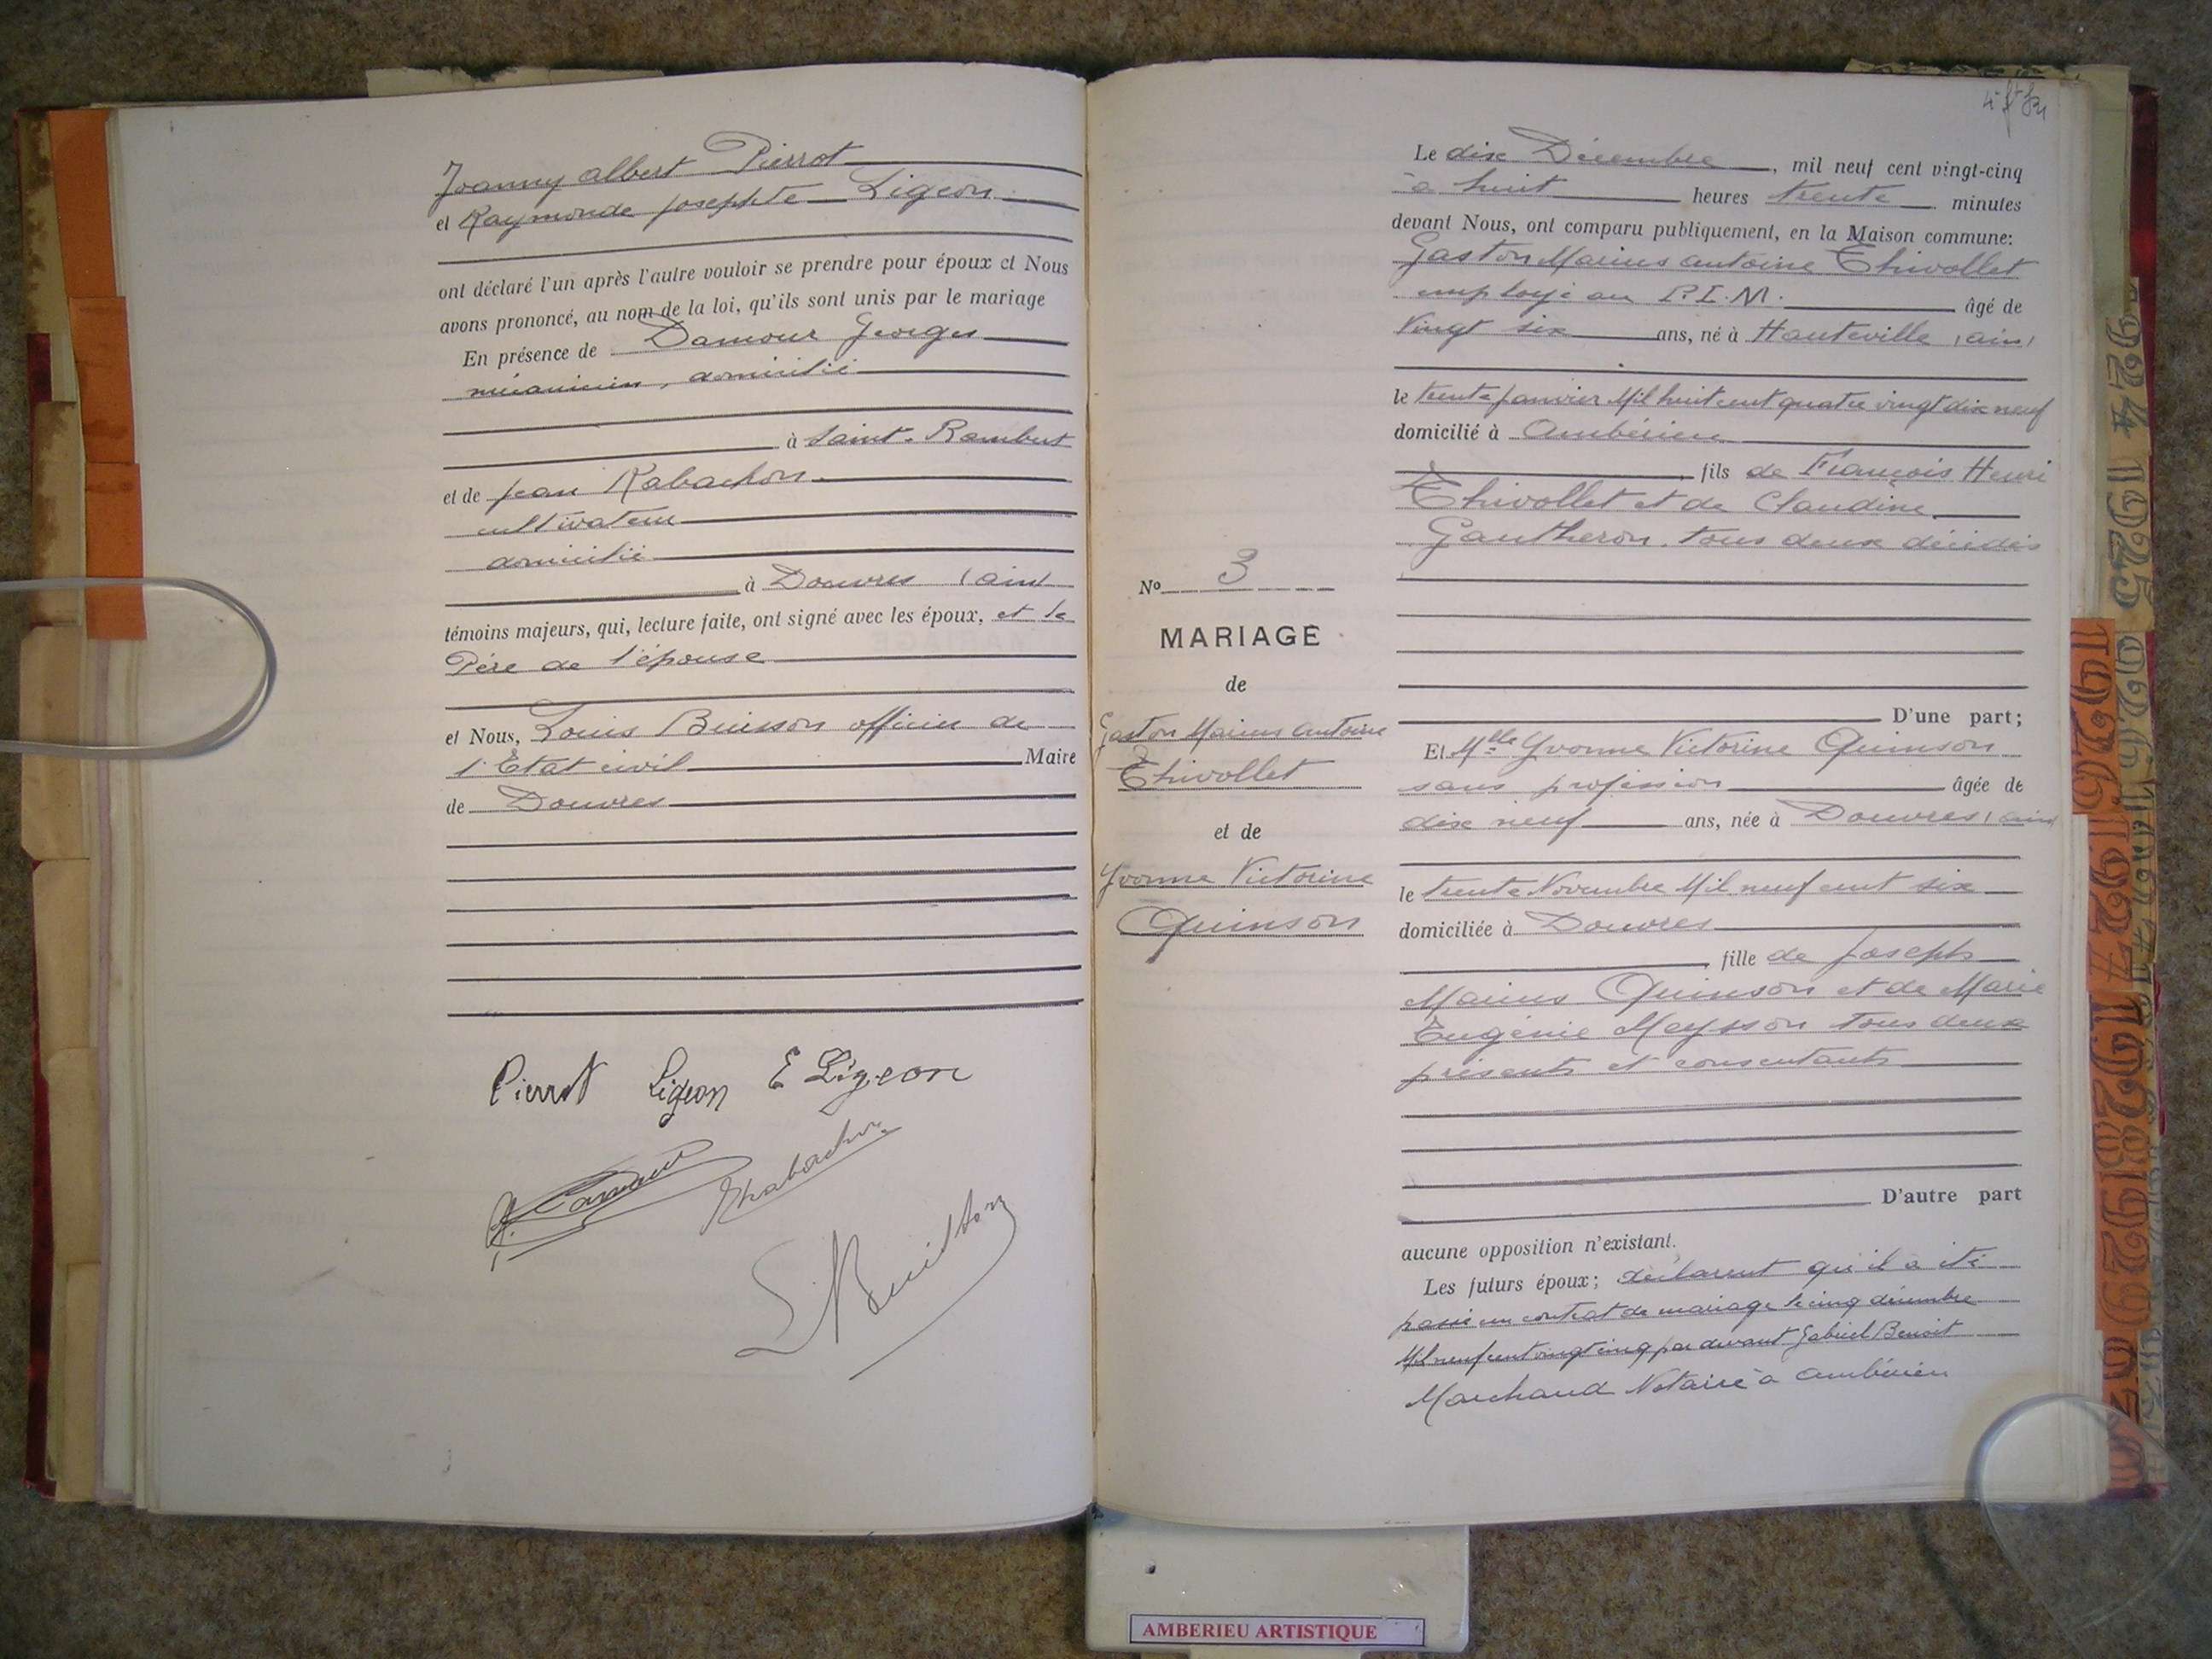 Joanny Albert Pierrot
et Raymonde Josephte Ligeon
ont déclaré l'un après l'autre vouloir se prendre pour époux et Nous
avons prononcé, au nom de la loi, qu'ils sont unis par le mariage
En présence de Damour Georges
mécanicien, domicilié
à Saint-Rambert
et de Jean Rabachon
cultivateur
domicilié
à Douvres (ain)
témoins majeurs, qui, lecture faite, ont signé avec les époux, et le
Père de l'épouse
et Nous, Louis Buisson officier de
l'Etat civil Maire
de Douvres
Pierrot Ligeon E Ligeon
Le dix Décembre, mil neuf cent vingt-cinq
à huit heures trente minutes
devant Nous, ont comparu publiquement, en la Maison commune:
Gaston Marius antoine Thivollet
employé au P.L.M. âgé de
Vingt six ans, né à Hauteville (ain)
le trente janvier Mil huit cent quatre vingt dix neuf
domicilié à Ambérieu
fils de François Henri
Thivollet et de Claudine
Gautheron, tous deux décédés
No 3
MARIAGE
de
Gaston Marius antoine
Thivollet
et de
Yvonne Victorine
Quinson
D'une part;
Et Mlle Yvonne Victorine Quinson
sans profession âgée de
dix neuf ans, née à Douvres (ain)
le trente Novembre Mil neuf cent six
domiciliée à Douvres
fille de Joseph
Marius Quinson et de Marie
Eugénie Meysson tous deux
présents et consentants
D'autre part
aucune opposition n'existant.
Les futurs époux; déclarent qu'il a été
passé un contrat de mariage le cinq décembre
Mil neuf cent vingt cinq par devant Gabriel Benoit
Marchand Notaire à Ambérieu
1924 1925 1926
1926 1927 1928 1929
AMBERIEU ARTISTIQUE